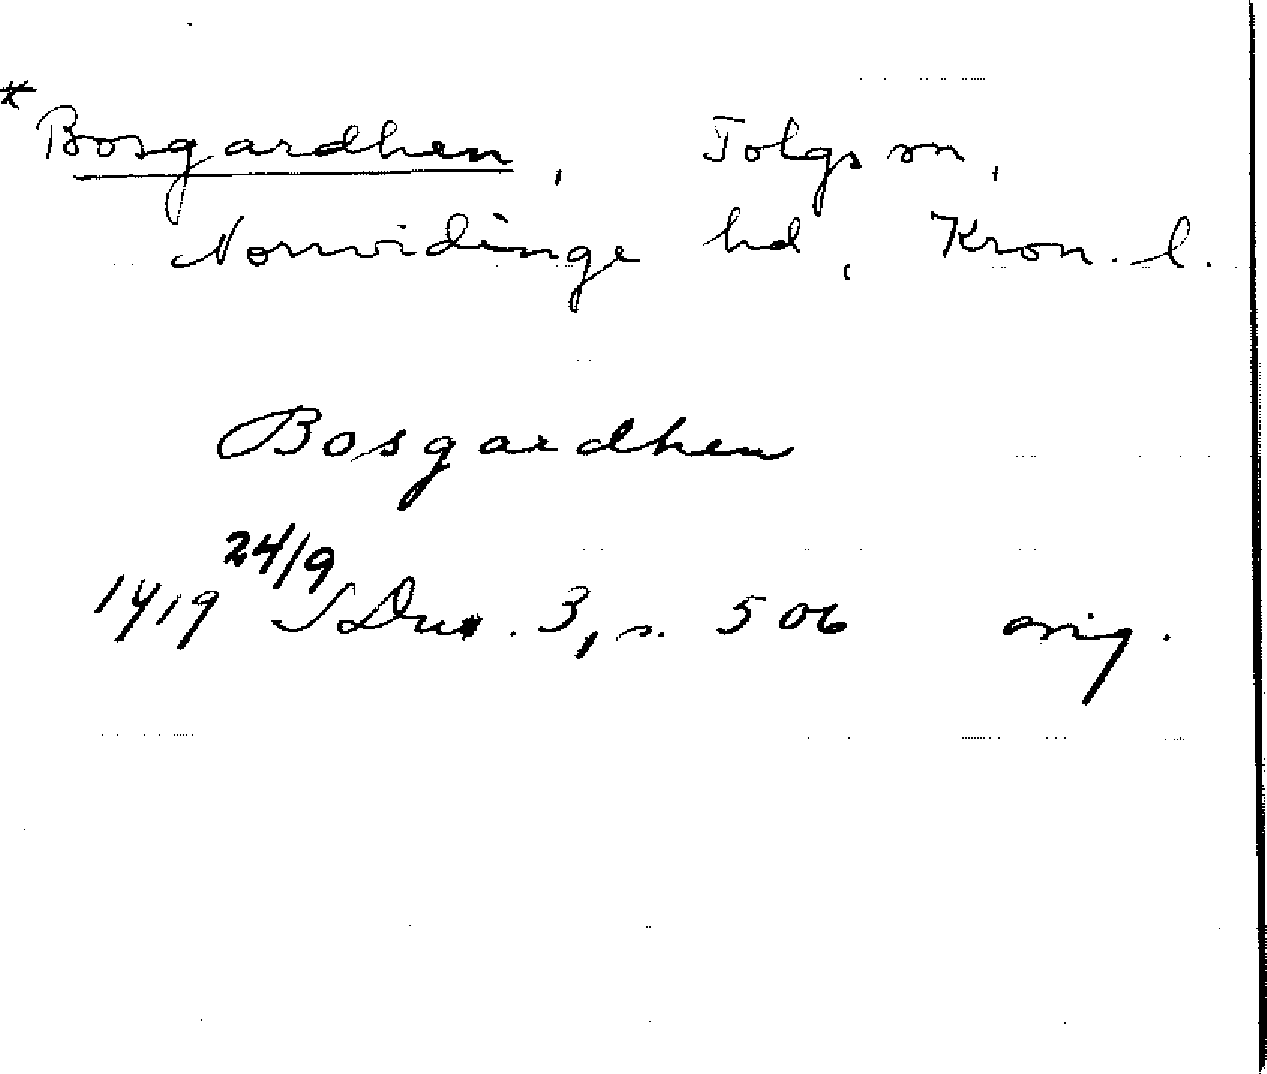 * Bosgardhen, Tolgs sn,
Norrvidinge hd, Kron. l.
Bosgardhen
1419 24/9 SDns. 3, s. 506 orig.